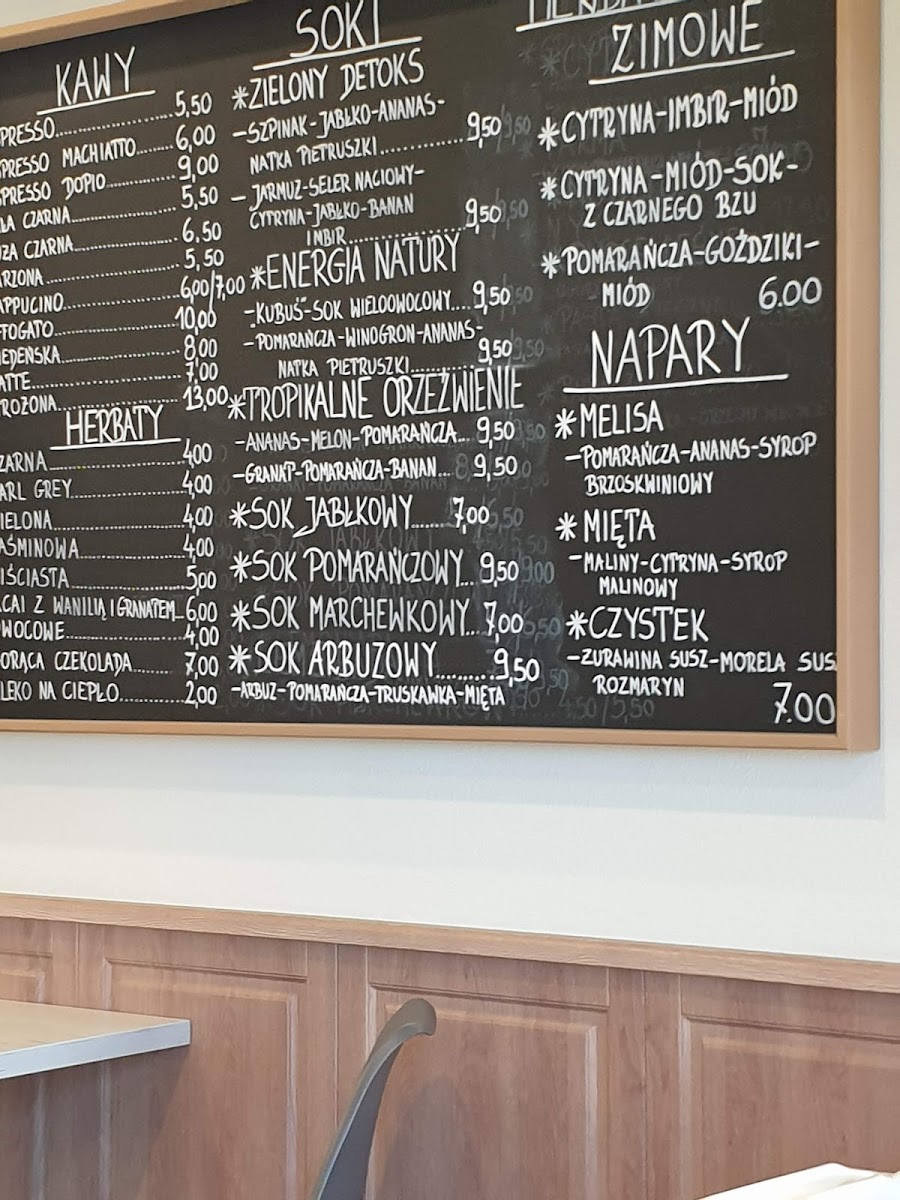 KAWY
PRESSO 5,50
PRESSO MACHIATTO 6,00
SPRESSO DOPIO 9,00
ŁA CZARNA 5,50
UŻA CZARNA 6.50
ARZONA 5,50
APPUCINO 6,00/7,00
FFOGATO 10,00
IEDEŃSKA 8,00
ATTE 7,00
ROŻONA 13,00
HERBATY
ZARNA 4,00
ARL GREY 4,00
IELONA 4,00
AŚMINOWA 4,00
IŚCIASTA 5,00
ACAI Z WANILIĄ I GRANATEM 6,00
WOCOWE 4,00
ORĄCA CZEKOLADA 7,00
LEKO NA CIEPŁO 2,00
SOKI
*ZIELONY DETOKS
-SZPINAK-JABŁKO-ANANAS-
NATKA PIETRUSZKI 9,50
- JARMUŻ-SELER NACIOWY-
CYTRYNA-JABŁKO-BANAN
IMBIR 9,50
*ENERGIA NATURY
-"KUBUŚ"-SOK WIELOOWOCOWY 9,50
-POMARAŃCZA-WINOGRON-ANANAS-
NATKA PIETRUSZKI 9,50
*TROPIKALNE ORZEŹWIENIE
-ANANAS-MELON-POMARAŃCZA 9,50
-GRANAT-POMARAŃCZA-BANAN 9,50
*SOK JABŁKOWY 7,00
*SOK POMARAŃCZOWY 9,50
*SOK MARCHEWKOWY 7,00
*SOK ARBUZOWY 9,50
-ARBUZ-POMARAŃCZA-TRUSKAWKA-MIĘTA
ZIMOWE
*CYTRYNA-IMBIR-MIÓD
*CYTRYNA-MIÓD-SOK-
Z CZARNEGO BZU
*POMARAŃCZA-GOŹDZIKI-
MIÓD 6.00
NAPARY
*MELISA
-POMARAŃCZA-ANANAS-SYROP
BRZOSKWINIOWY
*MIĘTA
-MALINY-CYTRYNA-SYROP
MALINOWY
*CZYSTEK
-ŻURAWINA SUSZ-MORELA SUS
ROZMARYN
7.00